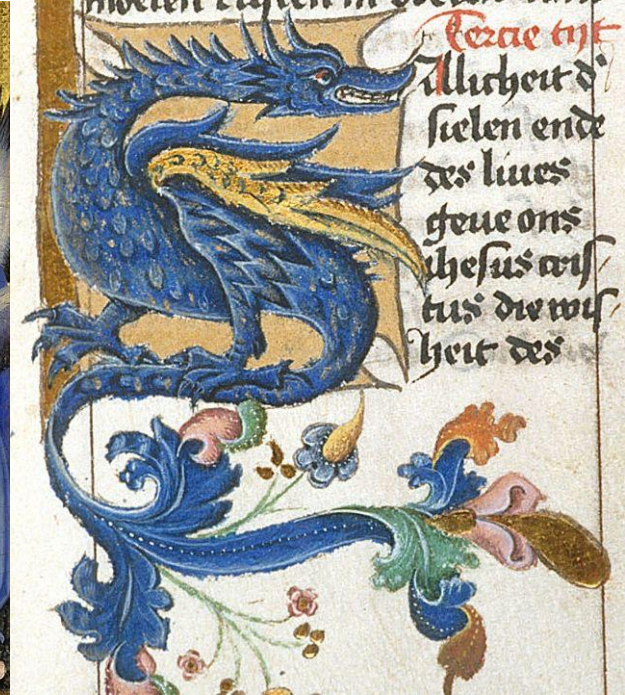 Tercie tijt
Allicheit d'
sielen ende
des liues
geue ons
ihesus cris/
tus die wijs/
heit des